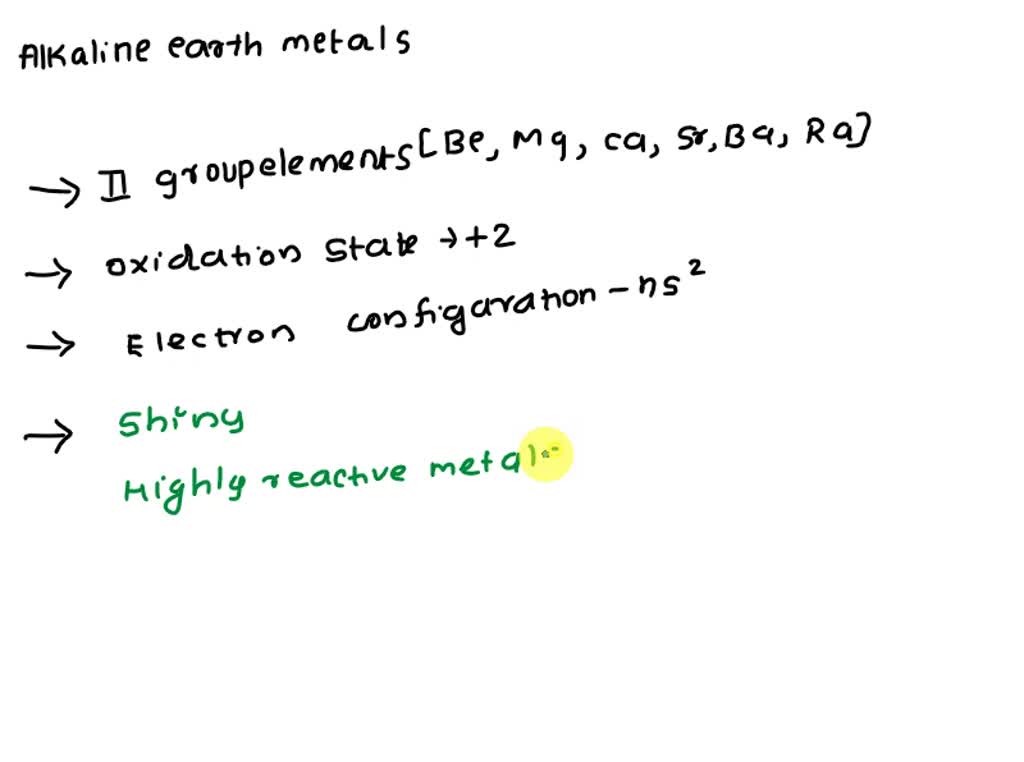 Alkaline earth metals
→ II group elements [Be, Mg, ca, Sr, Ba, Ra]
→ Oxidation state → +2
→ Electron configaration - ns²
→ Shiny
Highly reactive metal